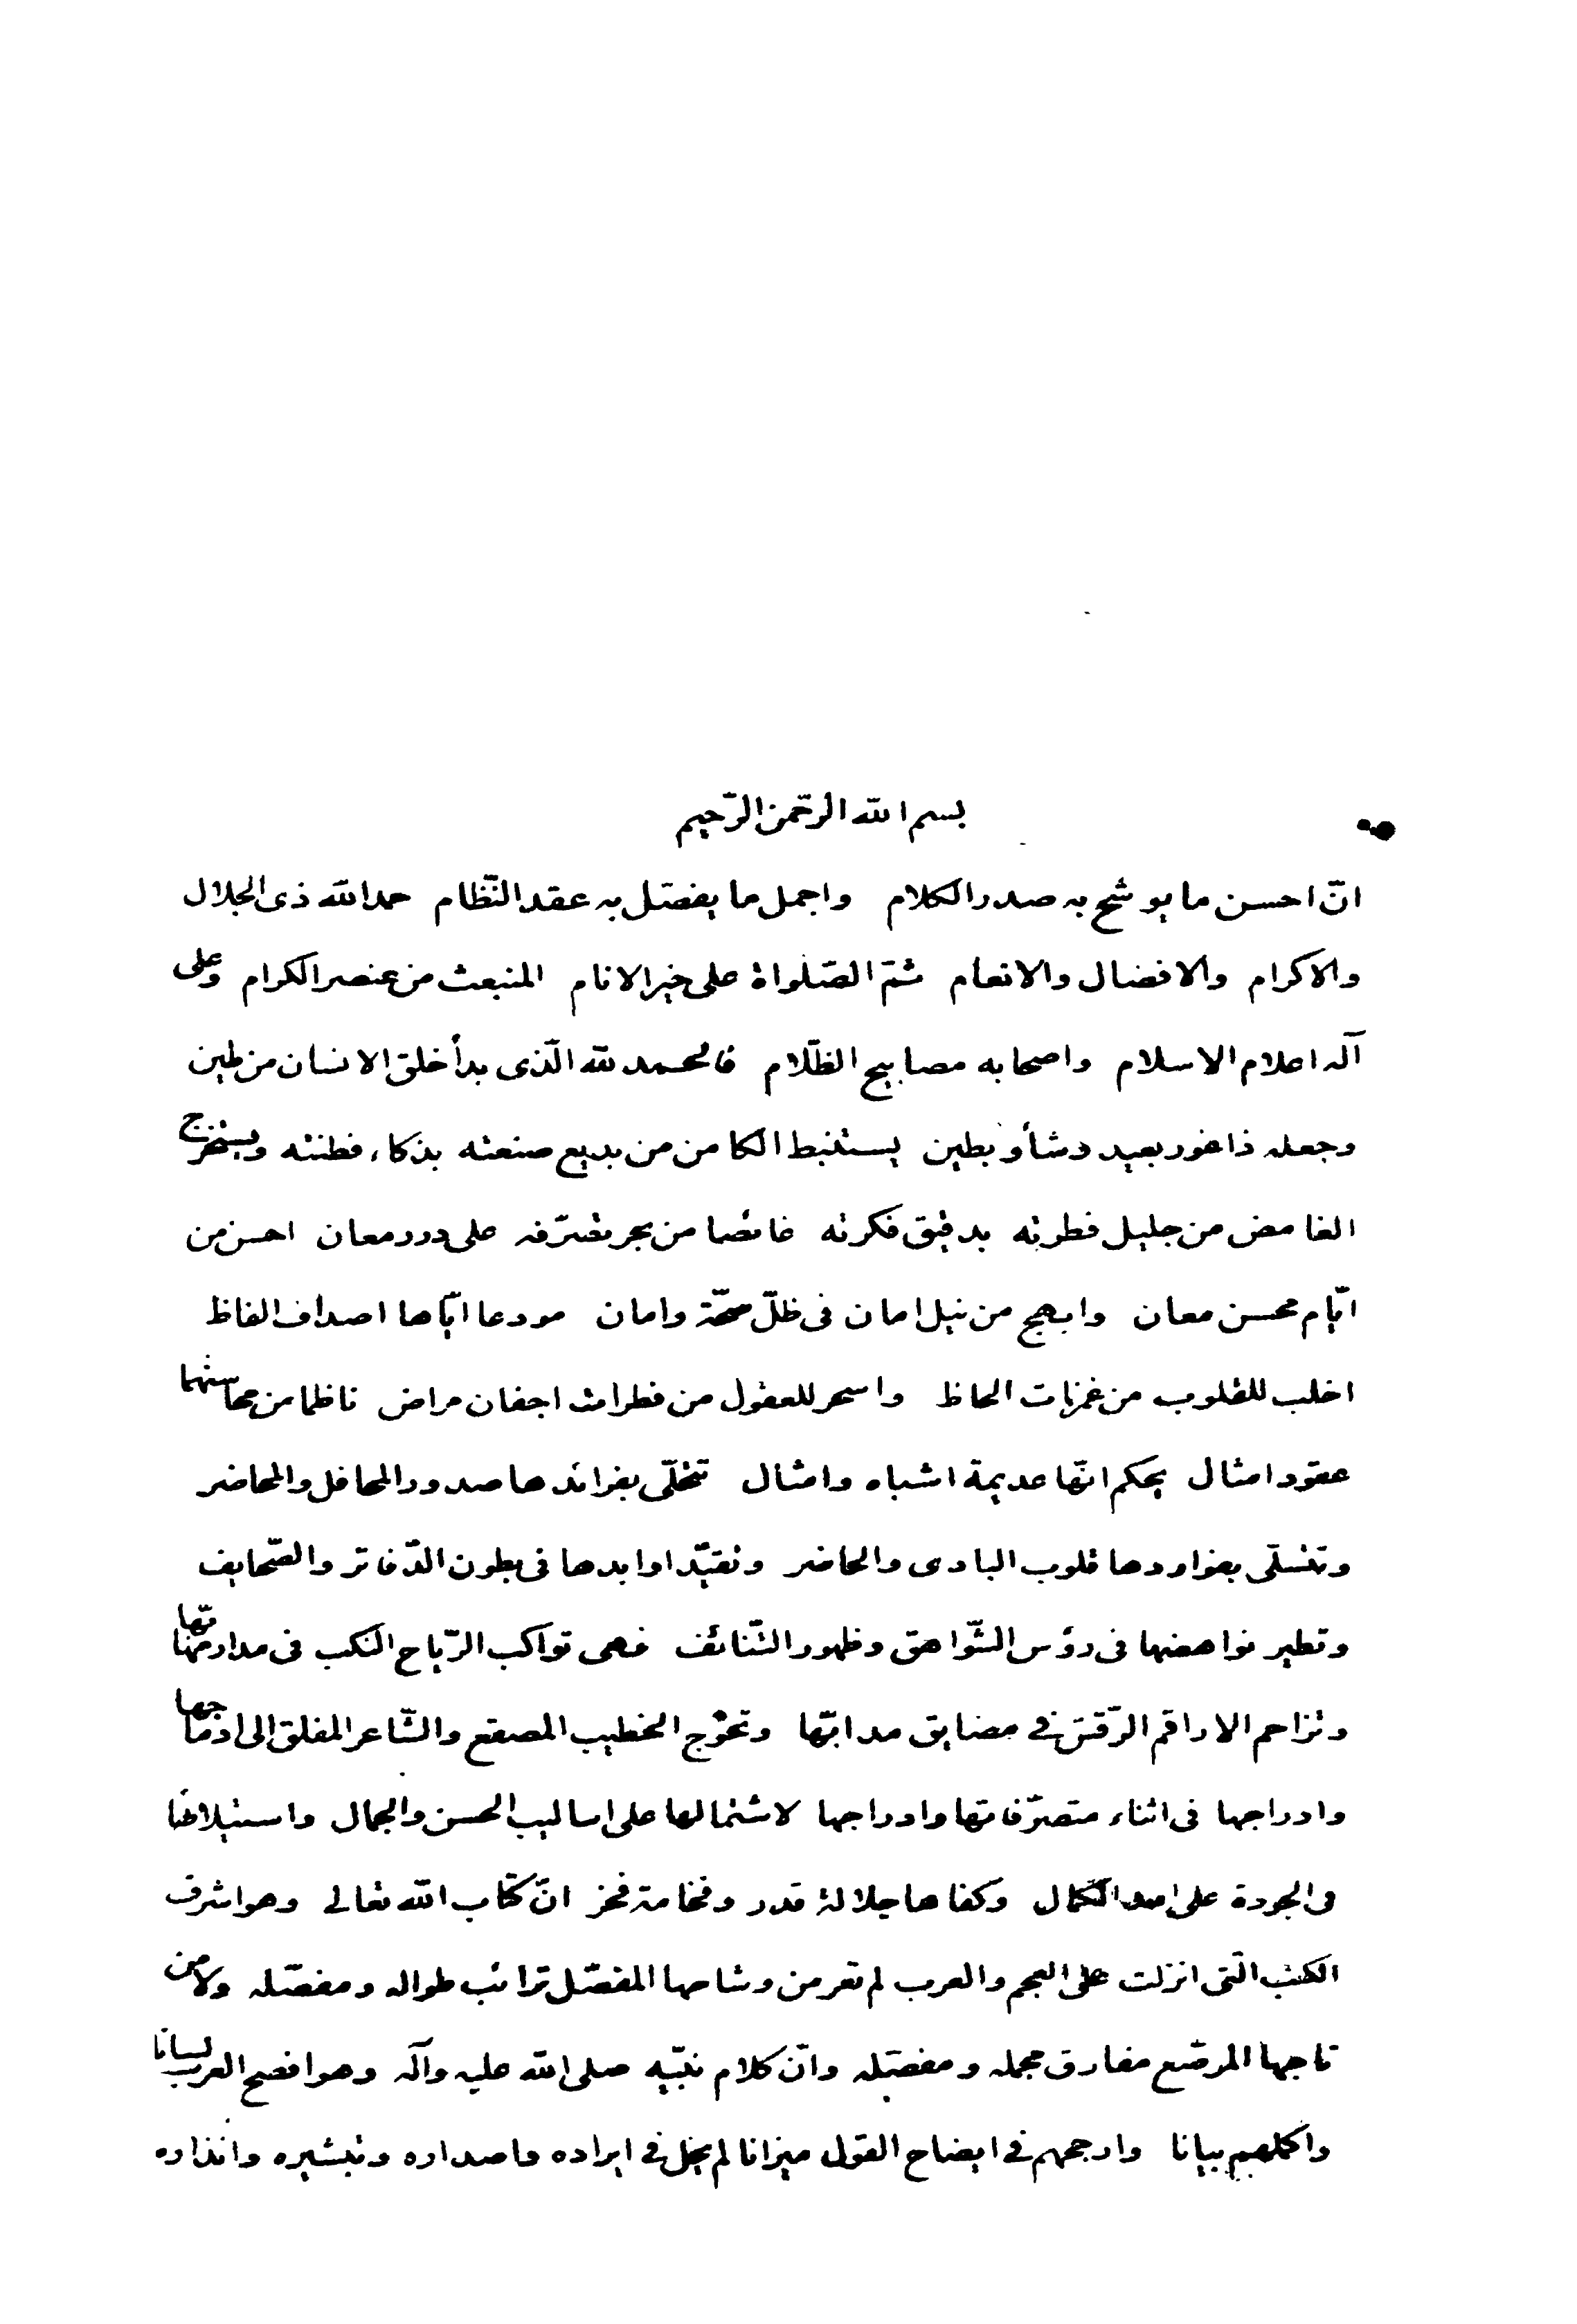 بسم الله الرّحمن الرّحيم
انّ احسن ما يوشح به صدر الكلام واجمل ما يفصّل به عقد النّظام حمد الله ذى الجلال
والاكرام والافضال والانعام ثمّ الصّلواة على خير الانام المنبعث من عنصر الكرام وعلى
آله اعلام الاسلام واصحابه مصابيح الظّلام فالحمد لله الّذى بدأ خلق الانسان من طين
وجعله ذا غور بعيد وشأو بطين يستنبط الكامن من بديع صنعته بذكاء فطنته ويستخرج
الغامض من جليل فطرته بدقيق فكرته غائصا من بحر تصرّفه على درر معان احسن من
ايّام محسن معان وابهج من نيل امان فى ظلّ صحّة وامان مودعا ايّاها اصداف الفاظ
اخلب للقلوب من غمزات الحاظ واسحر للعقول من فطرات اجفان مراض ناظما من محاسنهما
عقود امثال يحكم انّها عديمة اشباه وامثال تتحلّى بفرائدها صدور المحافل والمحاضر
وتتسلّى بفواردها قلوب البادى والحاضر وتقيّد اوابدها فى بطون الدّفاتر والصّحايف
وتطير نواهضها فى رؤس الشّواهق وظهور التّنائف فهى تواكب الرّياح النكب فى مدارج مهابّها
وتزاحم الاراقم الرّقش فى مضايق مدابّها وتحوّج الخطيب المصقع والشّاعر المفلق الى ادماجها
وادراجها فى اثناء متصرّفاتها وادراجها لاشتمالها على اساليب الحسن والجمال واستيلائها
فى الجودة على امد الكمال وكفاها جلالة قدر وفخامة فخر انّ كتاب الله تعالى وهو اشرف
الكتب الّتى انزلت على العجم والعرب لم تعر من وشاحها المفصّل ترائب طواله ومفصّله ولا من
تاجها المرصّع مفارق مجمله ومفصّله وانّ كلام نبيّه صلى الله عليه وآله وهو افصح العرب لسانا
واكملهم بيانا وارجحهم فى ايضاح القول ميزانا لم يخل فى ايراده واصداره وتبشيره وانذاره